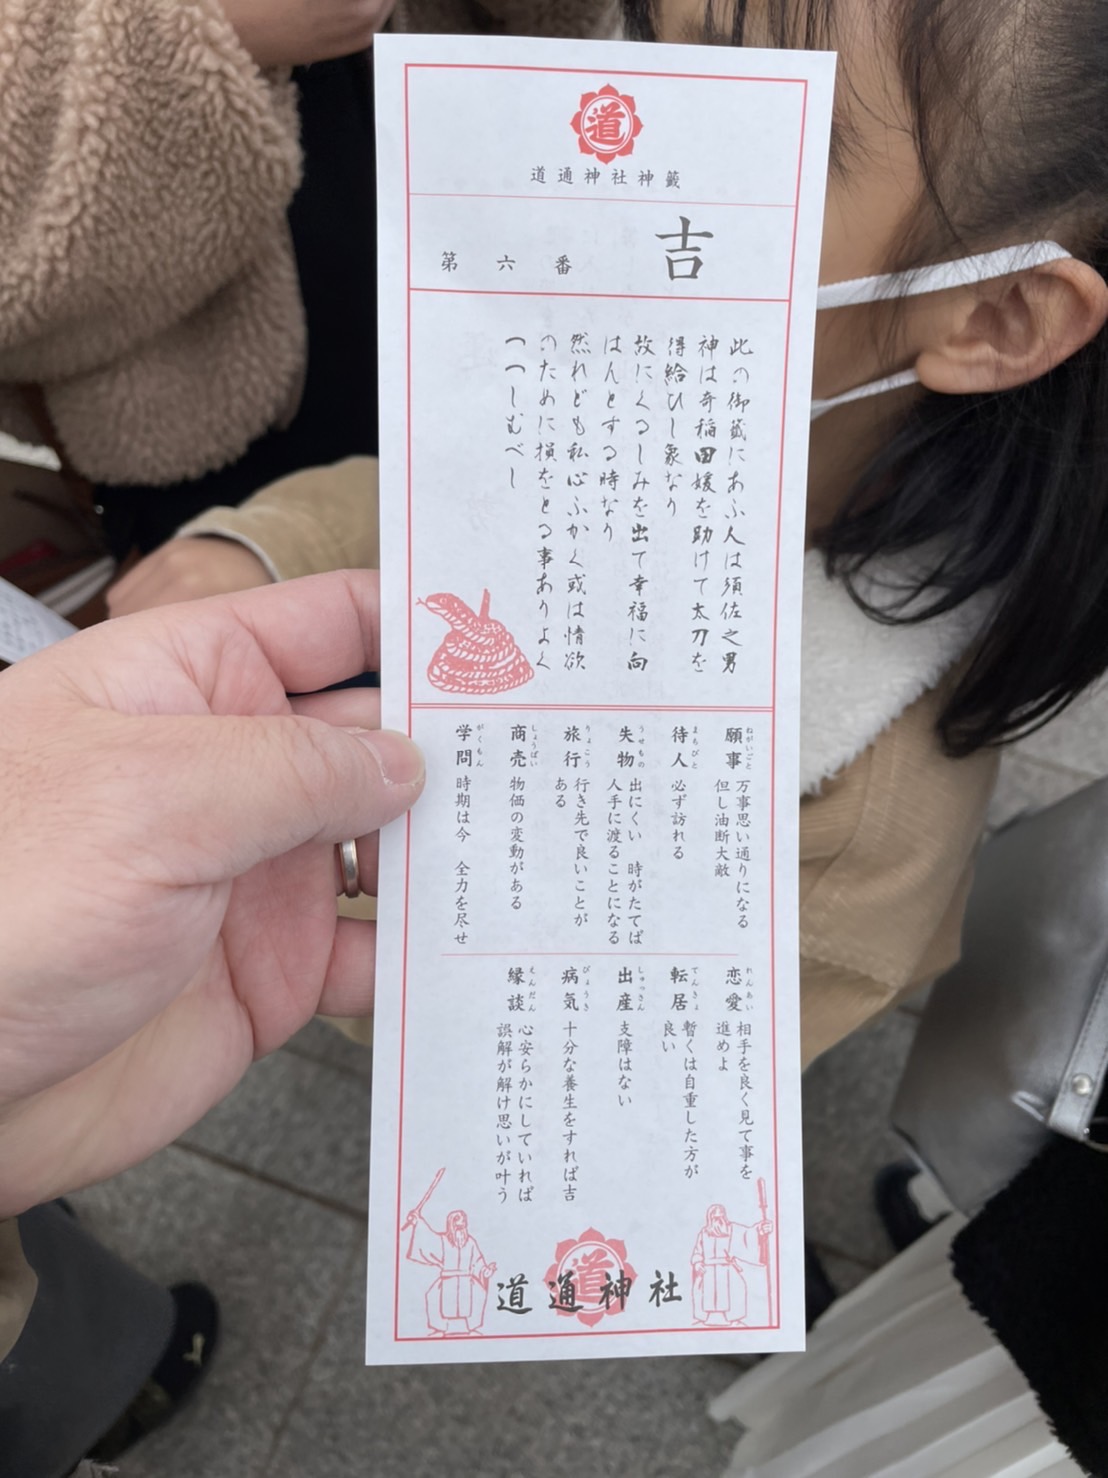 道
道通神社神籤
吉
第六番
此の御籤にあふ人は須佐之男
神は奇稲田媛を助けて太刀を
得給ひし象なり
故にくるしみを出て幸福に向
はんとする時なり
然れども私心ふかく或は情欲
のために損をとる事ありよく
つつしむべし
願事
ねがいごと
万事思い通りになる
但し油断大敵
待人
まちびと
必ず訪れる
失物
うせもの
出にくい 時がたてば
人手に渡ることになる
旅行
りょこう
行き先で良いことが
ある
商売
しょうばい
物価の変動がある
学問
がくもん
時期は今 全力を尽せ
恋愛
れんあい
相手を良く見て事を
進めよ
転居
てんきょ
暫くは自重した方が
良い
出産
しゅっさん
支障はない
病気
びょうき
十分な養生をすれば吉
縁談
えんだん
心安らかにしていれば
誤解が解け思いが叶う
道
道通神社